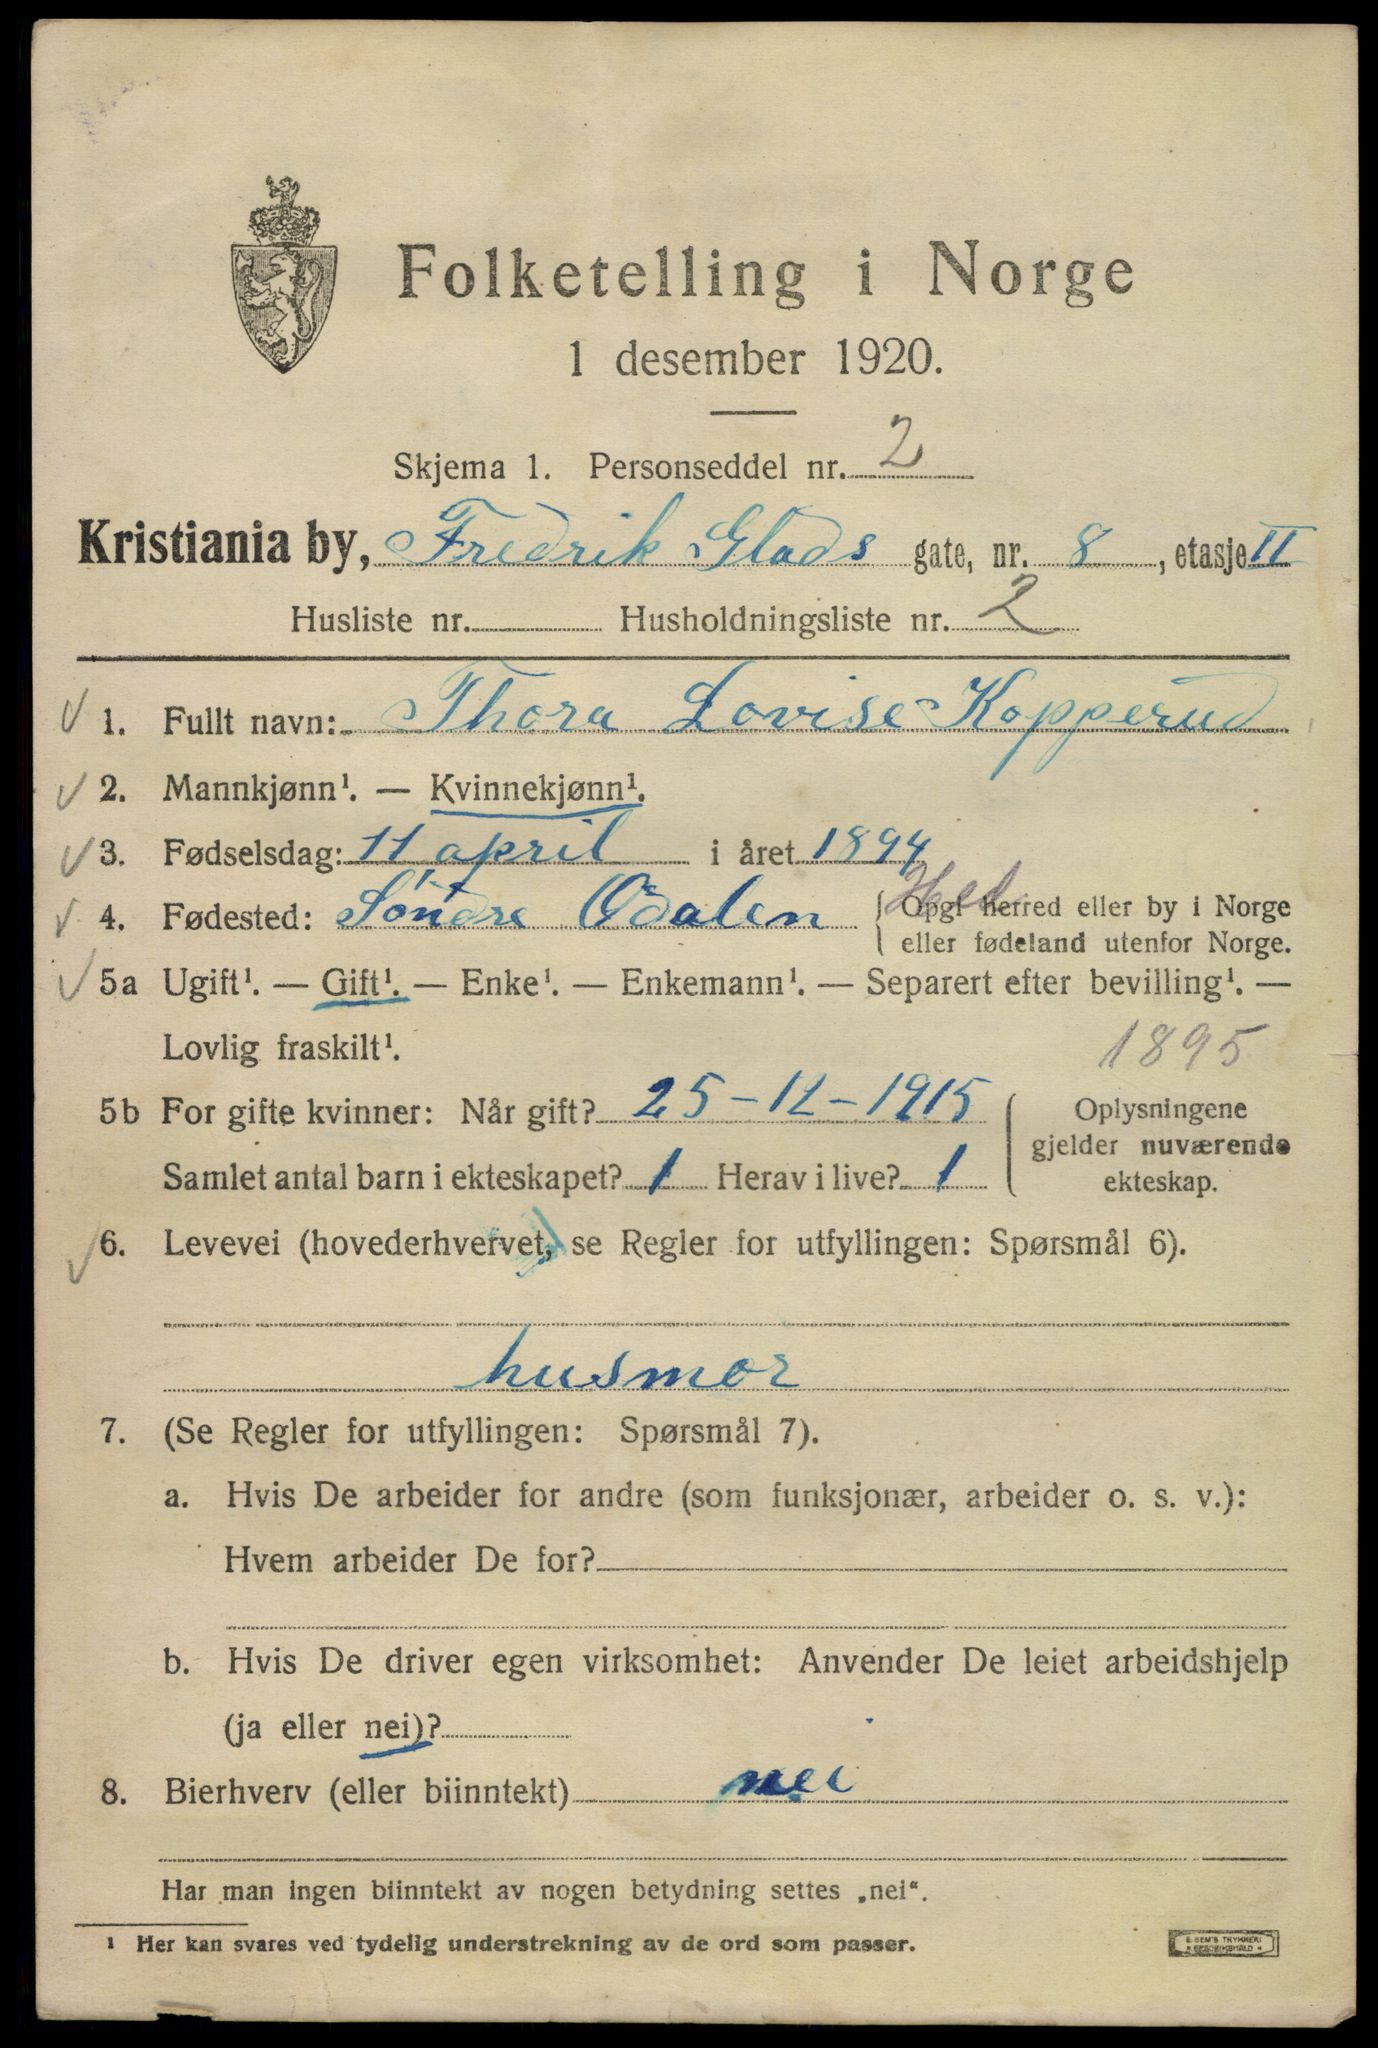 Folketelling i Norge
1 desember 1920.
Skjema 1. Personseddel nr. 2
Kristiania by, Fredrik Glads gate, nr. 8, etasje II
Husliste nr. Husholdningsliste nr. 2
1. Fullt navn: Thora Lovise Kopperud
2. Mannkjønn¹. — Kvinnekjønn¹.
3. Fødselsdag: 11 april i året 1894
Hed.
4. Fødested: Söndre Odalen Opgi herred eller by i Norge
eller fødeland utenfor Norge.
5a Ugift¹. — Gift¹. — Enke¹. — Enkemann¹. — Separert efter bevilling¹. —
Lovlig fraskilt¹.
1895
5b For gifte kvinner: Når gift? 25-12-1915 Oplysningene
gjelder nuværende
Samlet antal barn i ekteskapet? 1 Herav i live? 1 ekteskap.
6. Levevei (hovederhvervet, se Regler for utfyllingen: Spørsmål 6).
husmor
7. (Se Regler for utfyllingen: Spørsmål 7).
a. Hvis De arbeider for andre (som funksjonær, arbeider o. s. v.):
Hvem arbeider De for?
b. Hvis De driver egen virksomhet: Anvender De leiet arbeidshjelp
(ja eller nei)?
8. Bierhverv (eller biinntekt) nei
Har man ingen biinntekt av nogen betydning settes „nei“.
¹ Her kan svares ved tydelig understrekning av de ord som passer.
E. SEM'S TRYKKERI
FREDRIKSHALD